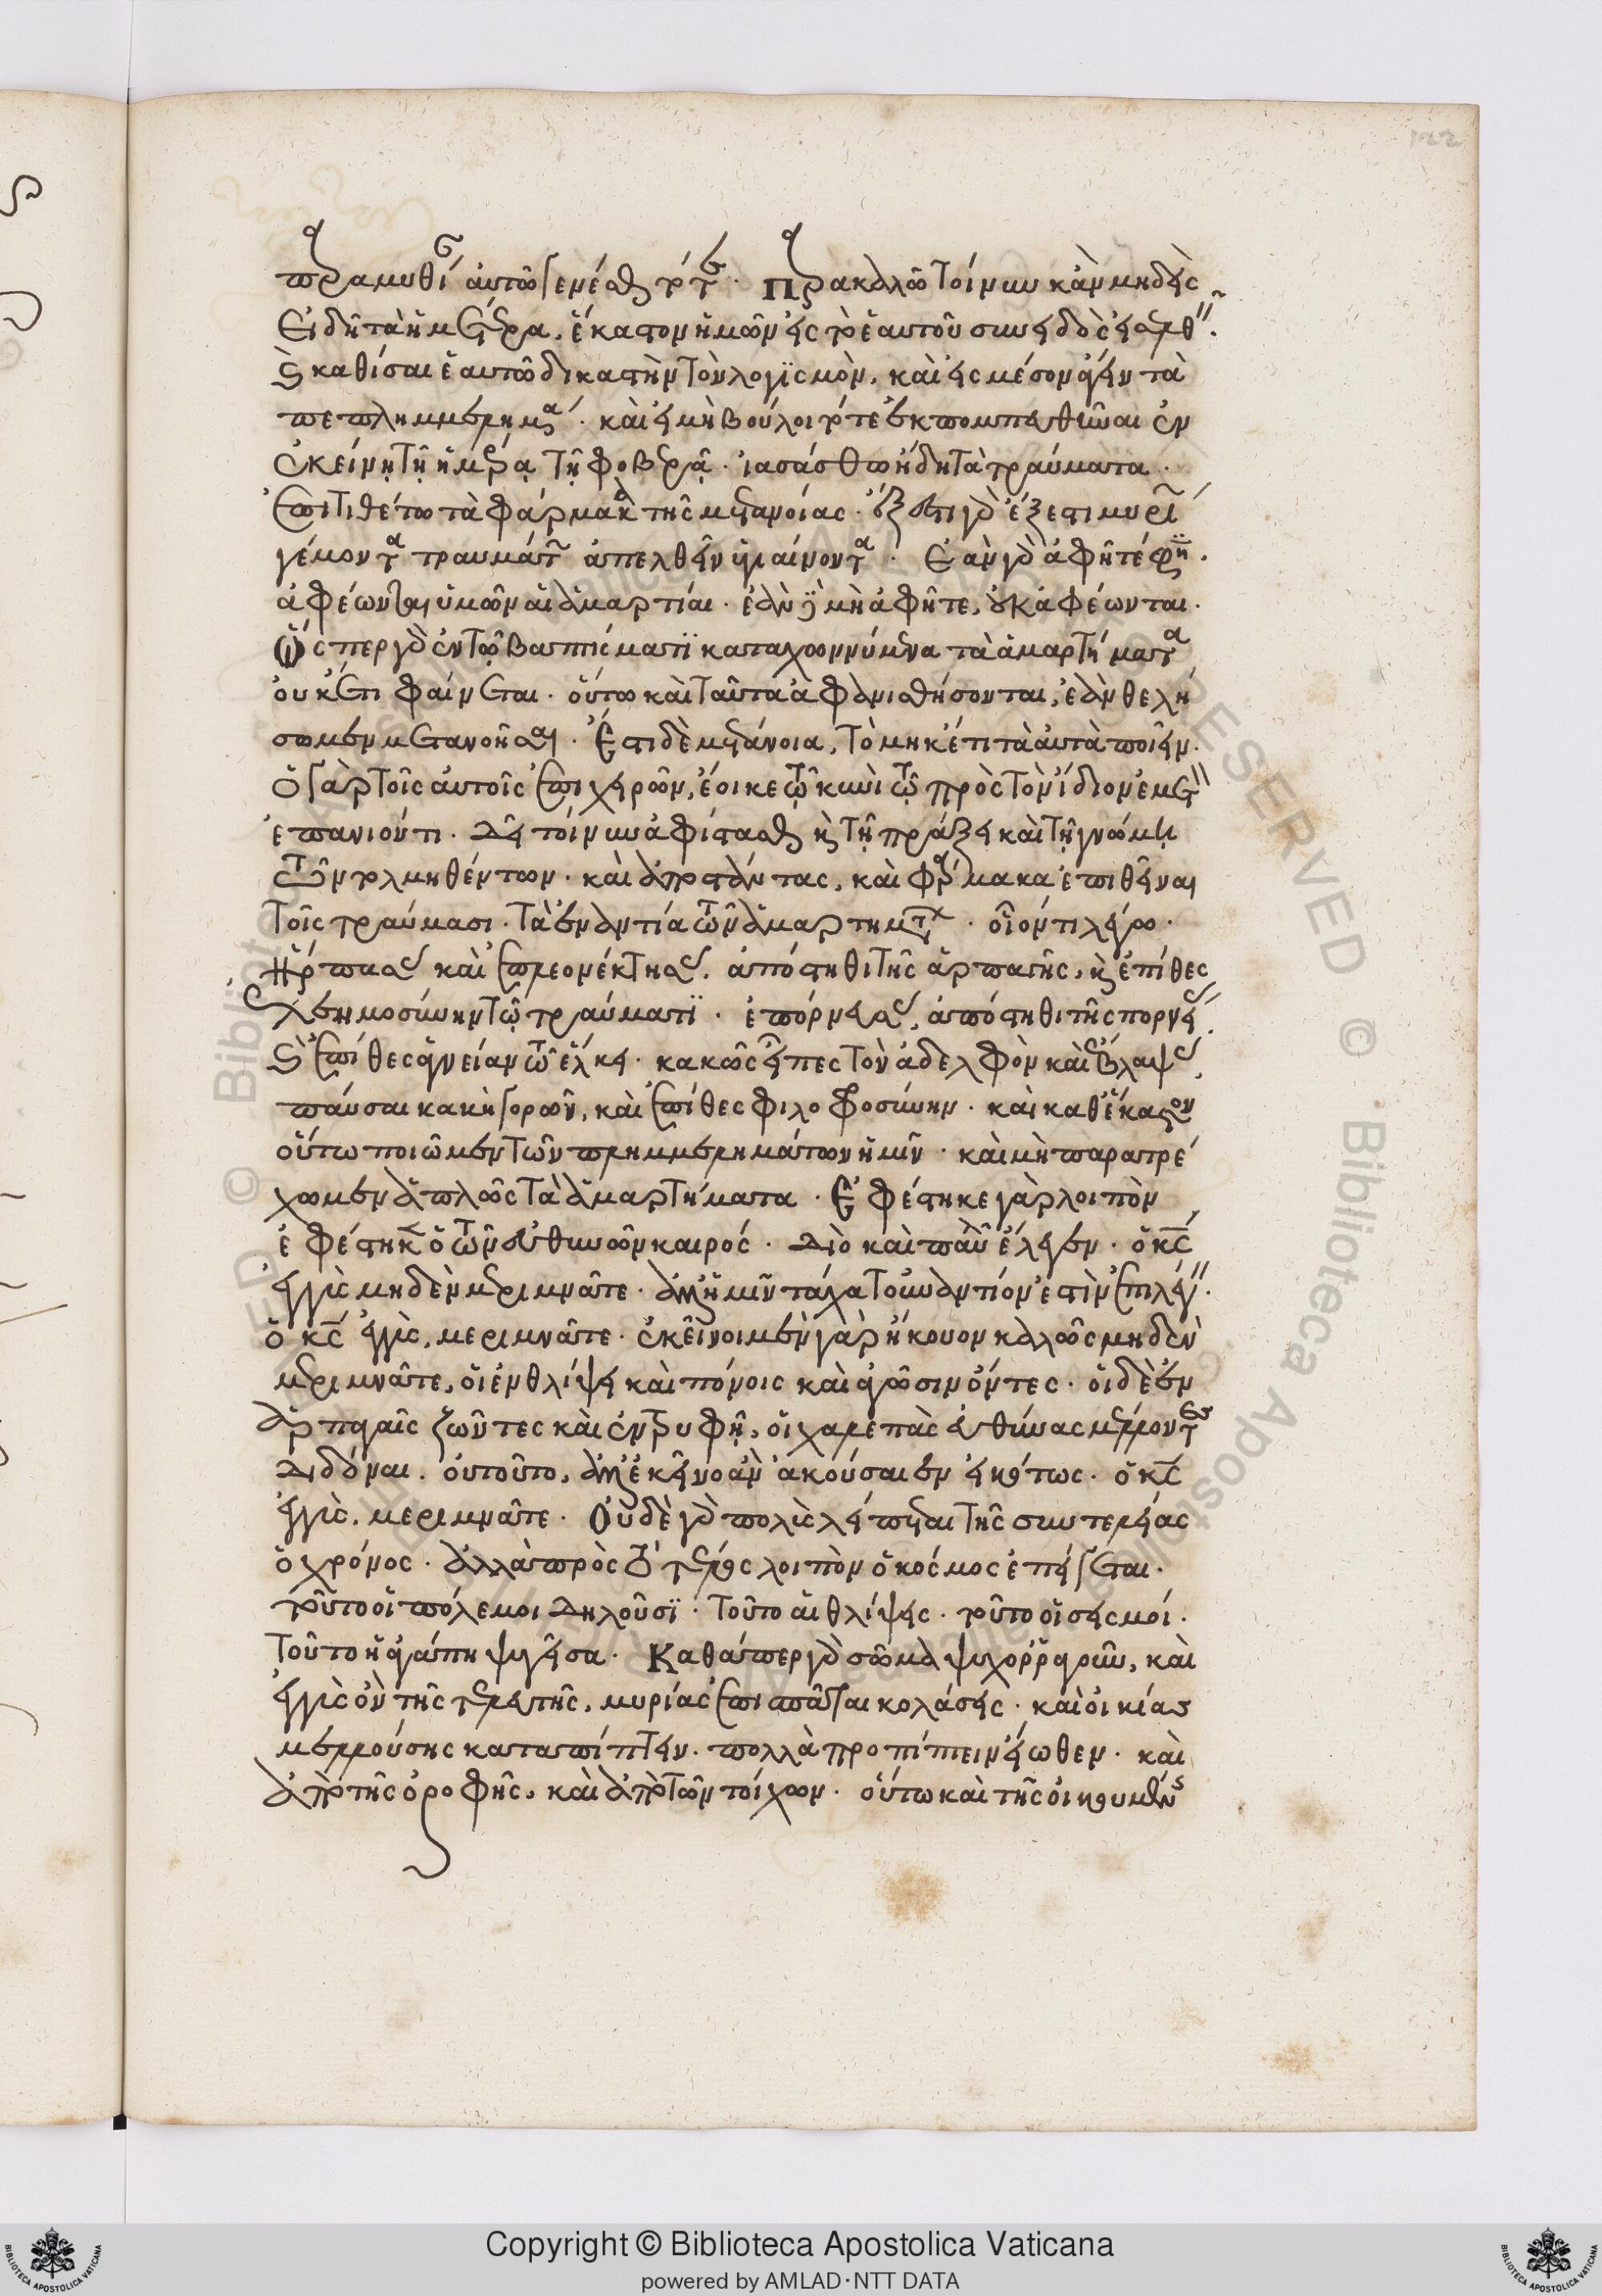 παραμυθί αὐτῶ γενέσθαι τοῦτο. Παρακαλῶ τοίνυν κἂν μηδεὶς
εἰδῆ τὰ ἡμέτερα, ἕκαστον ἡμῶν εἰς τὸ ἑαυτοῦ συνειδὸς εἰσελθεῖν.
καὶ καθίσαι ἑαυτῶ δικαστὴν τὸν λογϊσμὸν, καὶ εἰς μέσον ἄγειν τὰ
πεπλημμελημένα. καὶ εἰ μὴ βούλοιτό τε ἐκπομπευθῆναι ἐν
ἐκείνῃ τῇ ἡμέρᾳ τῇ φοβερᾷ. ἰασάσθω ἤδη τὰ τραύματα.
ἐπιτιθέτω τὰ φάρμακα τῆς μετανοίας. ἔξεστι γὰρ ἔξεστι μυρίων
γέμοντα τραυμάτων ἀπελθεῖν ὑγιαίνοντα. Ἐὰν γὰρ ἀφῆτέ φησιν.
ἀφέωνται ὑμῶν αἱ ἁμαρτίαι. ἐὰν δὲ μὴ ἀφῆτε, οὐκ ἀφέωνται.
Ὥσπερ γὰρ ἐν τῷ βαπτίσματϊ καταχωννύμενα τὰ ἁμαρτήματα
οὐκέτι φαίνεται. οὕτω καὶ ταῦτα ἀφανισθήσονται, ἐὰν θελή
σωμεν μετανοῆσαι. Ἔστι δὲ μετάνοια, τὸ μηκέτι τὰ αὐτὰ ποιεῖν.
Ὁ γὰρ τοῖς αὐτοῖς ἐπιχειρῶν, ἔοικε τῷ κυνὶ τῷ πρὸς τὸν ἴδιον ἔμετον
ἐπανιόντι. Δεῖ τοίνυν ἀφίστασθαι καὶ τῇ πράξει καὶ τῇ γνώμῃ
τῶν τολμηθέντων. καὶ ἀποστάντας, καὶ φάρμακα ἐπιθεῖναι
τοῖς τραύμασι. τὰ ἐναντία τῶν ἁμαρτημάτων. οἷόν τι λέγω.
Ἥρπασας καὶ ἐπλεονέκτησας. ἀπόστηθι τῆς ἁρπαγῆς, καὶ ἐπίθες
ἐλεημοσύνην τῷ τραύματϊ. ἐπόρνευσας, ἀπόστηθι τῆς πορνείας.
καὶ ἐπίθες ἁγνείαν τῷ ἕλκει. κακῶς εἶπες τὸν ἀδελφὸν καὶ ἔβλαψας,
παῦσαι κακηγορῶν, καὶ ἐπίθες φιλοφροσύνην. καὶ καθ' ἕκαστον
οὕτω ποιῶμεν τῶν πλημμελημάτων ἡμῖν. καὶ μὴ παρατρέ
χωμεν ἁπλῶς τὰ ἁμαρτήματα. Ἐφέστηκε γὰρ λοιπὸν
ἐφέστηκεν ὁ τῶν εὐθυνῶν καιρός. Διὸ καὶ παῦλος ἔλεγεν. ὁ κς
ἐγγὺς μηδὲν μεριμνᾶτε. ἀλλ' ἡμῖν τάχα τοὐναντίον ἐστὶν ἐπιλέγειν.
ὁ κς ἐγγὺς, μεριμνᾶτε. ἐκεῖνοι μὲν γὰρ ἤκουον καλῶς μηδὲν
μεριμνᾶτε, οἱ ἐν θλίψει καὶ πόνοις καὶ ἀγῶσιν ὄντες. οἱ δὲ ἐν
ἁρπαγαῖς ζῶντες καὶ ἐν τρυφῇ, οἱ χαλεπὰς εὐθύνας μέλλοντες
διδόναι. οὐ τοῦτο, ἀλλ' ἐκεῖνο ἂν ἀκούσαιεν εἰκότως. ὁ κς
ἐγγὺς, μεριμνᾶτε. Οὐδὲ γὰρ πολὺς λείπεται τῆς συντελείας
ὁ χρόνος. ἀλλὰ πρὸς τὸ τέλος λοιπὸν ὁ κόσμος ἐπείγεται.
τοῦτο οἱ πόλεμοι δηλοῦσϊ. τοῦτο αἱ θλίψεις. τοῦτο οἱ σεισμοί.
τοῦτο ἡ ἀγάπη ψυγεῖσα. Καθάπερ γὰρ σῶμα ψυχορραγοῦν, καὶ
ἐγγὺς ὂν τῆς τελευτῆς, μυρίας ἐπισπᾶται κολάσεις. καὶ οἰκίας
μελλούσης καταπίπτειν. πολλὰ προπίπτειν εἴωθεν. καὶ
ἀπὸ τῆς ὀροφῆς, καὶ ἀπὸ τῶν τοίχων. οὕτω καὶ τῆς οἰκουμένης
Copyright © Biblioteca Apostolica Vaticana
powered by AMLAD·NTT DATA